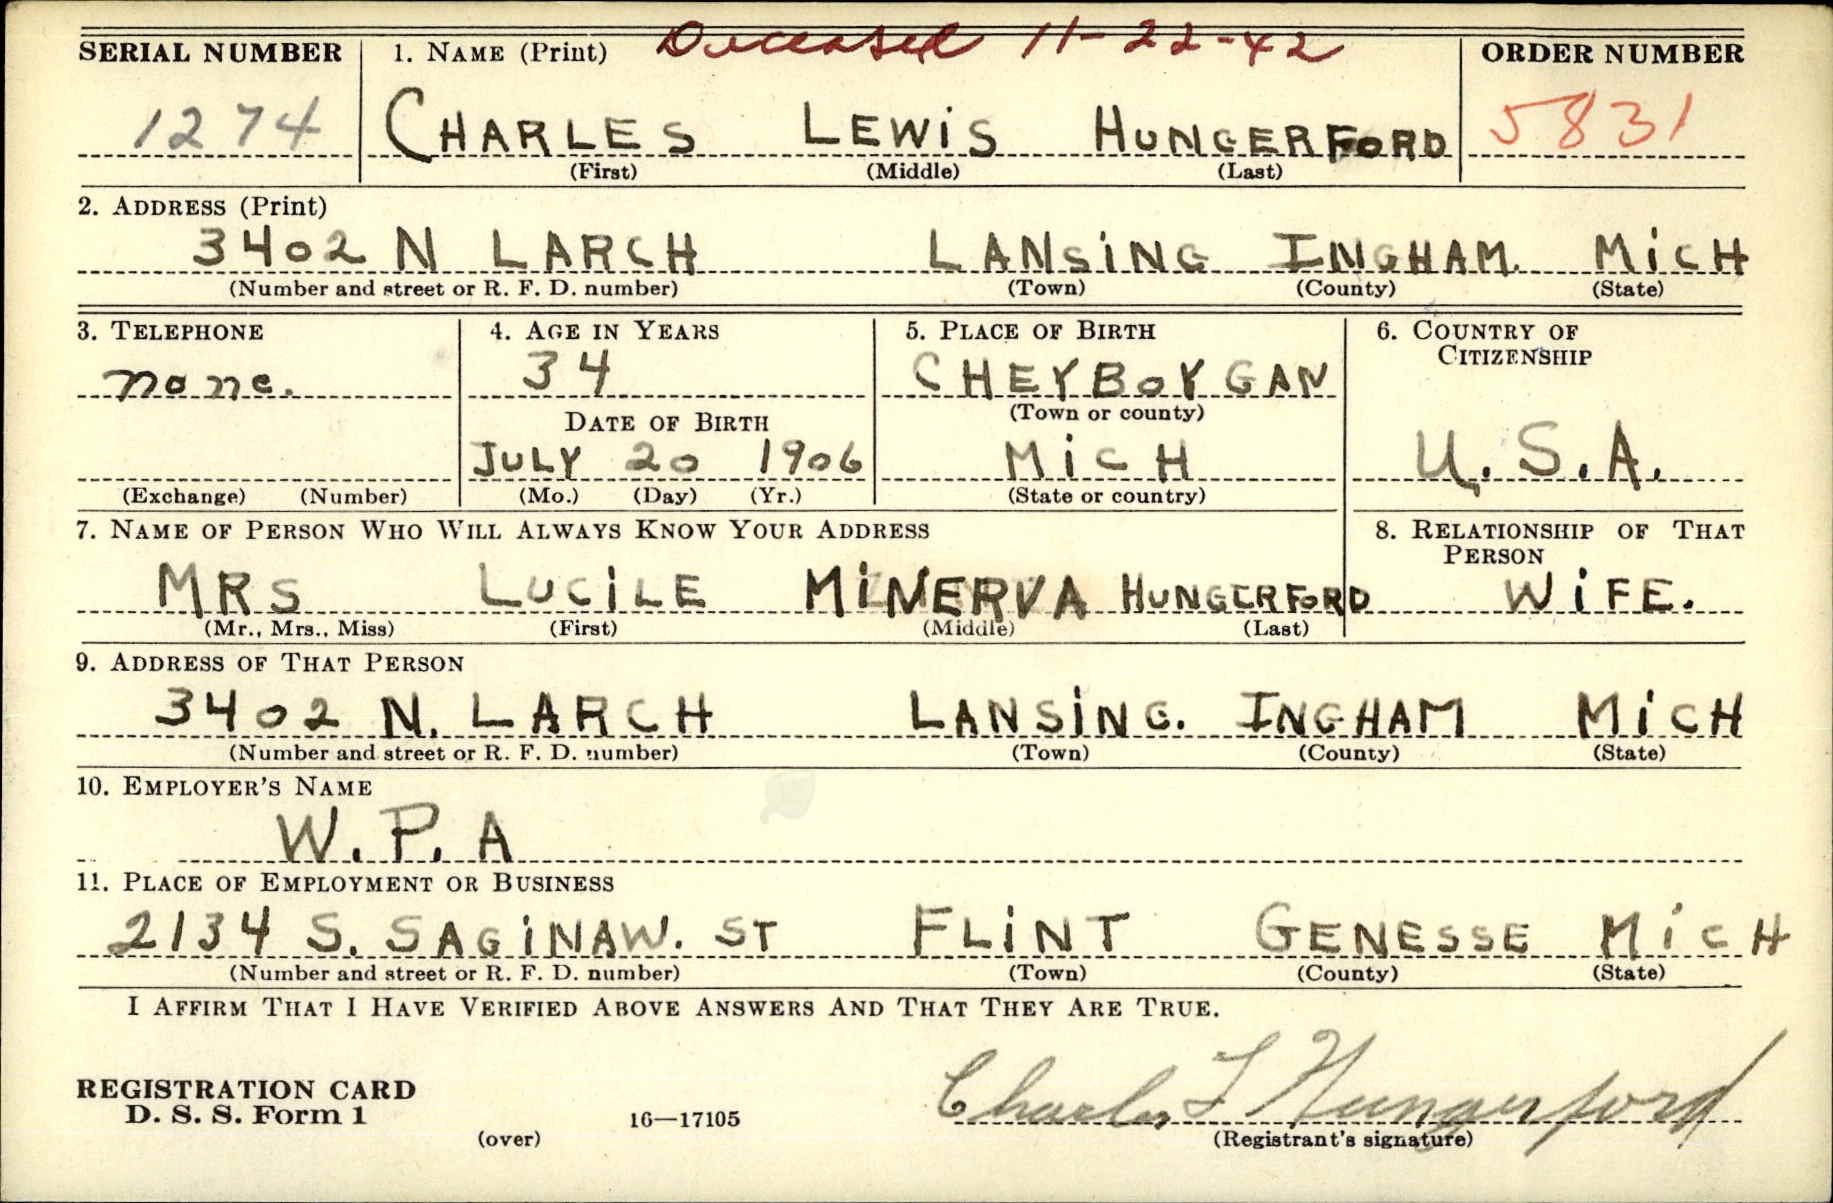 Deceased 11-22-42
SERIAL NUMBER 1. NAME (Print) ORDER NUMBER
1274 CHARLES LEWIS HUNGERFORD 5831
(First) (Middle) (Last)
2. ADDRESS (Print)
3402 N LARCH LANSING INGHAM. MICH
(Number and street or R. F. D. number) (Town) (County) (State)
3. TELEPHONE 4. AGE IN YEARS 5. PLACE OF BIRTH 6. COUNTRY OF
CITIZENSHIP
none. 34 CHEYBOYGAN
DATE OF BIRTH (Town or county)
JULY 20 1906 MICH U.S.A.
(Exchange) (Number) (Mo.) (Day) (Yr.) (State or country)
7. NAME OF PERSON WHO WILL ALWAYS KNOW YOUR ADDRESS 8. RELATIONSHIP OF THAT
PERSON
MRS LUCILE MINERVA HUNGERFORD WIFE.
(Mr., Mrs., Miss) (First) (Middle) (Last)
9. ADDRESS OF THAT PERSON
3402 N. LARCH LANSING. INGHAM MICH
(Number and street or R. F. D. number) (Town) (County) (State)
10. EMPLOYER'S NAME
W.P.A
11. PLACE OF EMPLOYMENT OR BUSINESS
2134 S. SAGINAW. ST FLINT GENESSE MICH
(Number and street or R. F. D. number) (Town) (County) (State)
I AFFIRM THAT I HAVE VERIFIED ABOVE ANSWERS AND THAT THEY ARE TRUE.
REGISTRATION CARD
D. S. S. Form 1 16—17105 Charles L Hungerford
(over) (Registrant's signature)